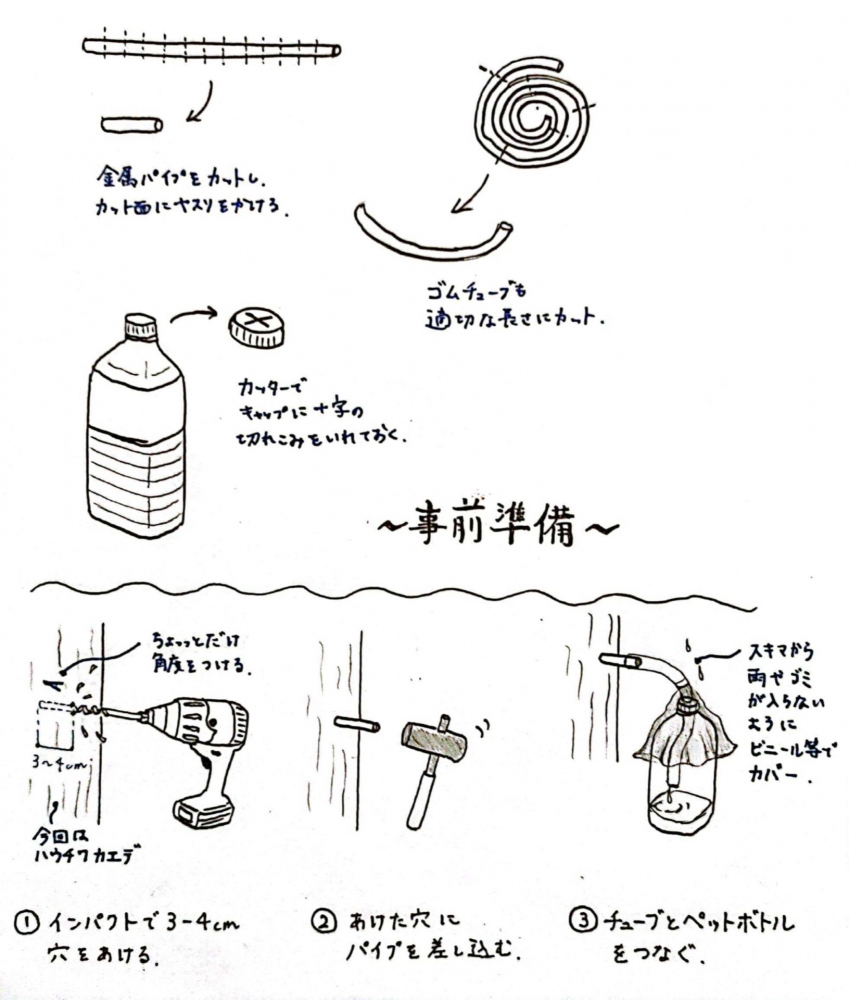 金属パイプをカットし.
カット面にヤスリをかける.
ゴムチューブも
適切な長さにカット.
カッターで
キャップに十字の
切れこみをいれておく.
～事前準備～
ちょっとだけ
角度をつける.
3~4cm
今回は
ハウチワカエデ
スキマから
雨やゴミ
が入らない
ように
ビニール等で
カバー.
① インパクトで3-4cm
穴をあける.
② あけた穴に
パイプを差し込む.
③ チューブとペットボトル
をつなぐ.